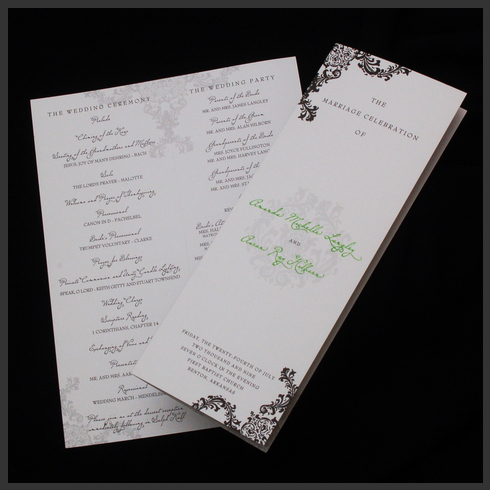 THE WEDDING CEREMONY
Prelude
Chiming of the Hour
Seating of the Grandmothers and Mothers
JESUS, JOY OF MAN'S DESIRING - BACH
Solo
THE LORD'S PRAYER - MALOTTE
Welcome and Prayer of Thanksgiving
Processional
CANON IN D - PACHELBEL
Bride's Processional
TRUMPET VOLUNTARY - CLARKE
Prayer for Blessing
SPEAK, O LORD - KEITH GETTY AND STUART TOWNSEND
Wedding Charge
Scripture Reading
1 CORINTHIANS, CHAPTER 14
Exchanging of Vows and
MR. AND MRS.
Recessional
WEDDING MARCH - MENDELS
Please join us at the dessert reception
immediately following in
THE WEDDING PARTY
Parents of the Bride
MR. AND MRS. JAMES LANGLEY
Parents of the Groom
MR. AND MRS. ALAN HILBORN
Grandparents of the Bride
MRS. JOYCE FULLINGTON
MR. AND MRS. HARVEY LANG
Grandparents of the
MR. AND MRS.
MR. AND MRS.
THE
MARRIAGE CELEBRATION
OF
Amanda Michelle Langley
AND
Aaron Ray Hilborn
FRIDAY, THE TWENTY-FOURTH OF JULY
TWO THOUSAND AND NINE
SEVEN O'CLOCK IN THE EVENING
FIRST BAPTIST CHURCH
BENTON, ARKANSAS